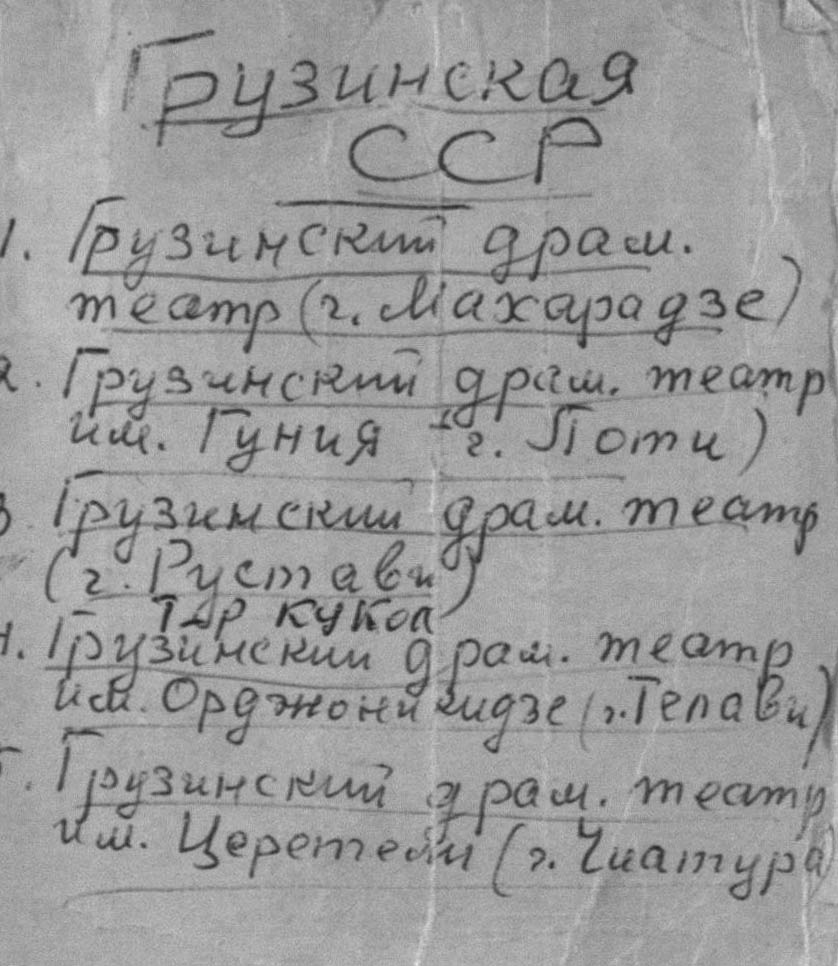 Грузинская
ССР
1. Грузинский драм.
театр (г. Махарадзе)
2. Грузинский драм. театр
им. Гуния г. Поти)
3 Грузинский драм. театр
(г. Рустави)
Т-Р КУКОЛ
4. Грузинский драм. театр
им. Орджоникидзе (г. Телави)
5. Грузинский драм. театр
им. Церетели (г. Чиатура)